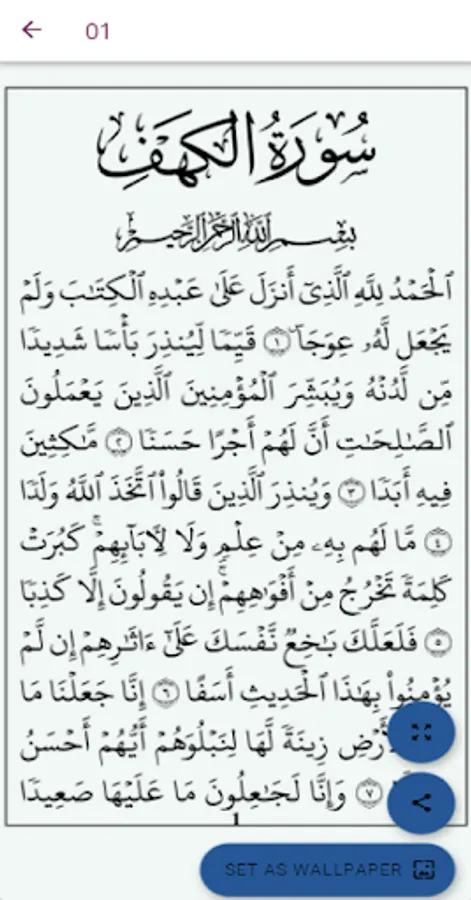 01
سُورَةُ الْكَهْفِ
بِسْمِ اللَّهِ الرَّحْمَٰنِ الرَّحِيمِ
ٱلْحَمْدُ لِلَّهِ ٱلَّذِىٓ أَنزَلَ عَلَىٰ عَبْدِهِ ٱلْكِتَٰبَ وَلَمْ
يَجْعَل لَّهُۥ عِوَجَاۜ ١ قَيِّمًا لِّيُنذِرَ بَأْسًا شَدِيدًا
مِّن لَّدُنْهُ وَيُبَشِّرَ ٱلْمُؤْمِنِينَ ٱلَّذِينَ يَعْمَلُونَ
ٱلصَّٰلِحَٰتِ أَنَّ لَهُمْ أَجْرًا حَسَنًا ٢ مَّٰكِثِينَ
فِيهِ أَبَدًا ٣ وَيُنذِرَ ٱلَّذِينَ قَالُوا۟ ٱتَّخَذَ ٱللَّهُ وَلَدًا
٤ مَّا لَهُم بِهِۦ مِنْ عِلْمٍ وَلَا لِءَابَآئِهِمْ ۚ كَبُرَتْ
كَلِمَةً تَخْرُجُ مِنْ أَفْوَٰهِهِمْ ۚ إِن يَقُولُونَ إِلَّا كَذِبًا
٥ فَلَعَلَّكَ بَٰخِعٌ نَّفْسَكَ عَلَىٰٓ ءَاثَٰرِهِمْ إِن لَّمْ
يُؤْمِنُوا۟ بِهَٰذَا ٱلْحَدِيثِ أَسَفًا ٦ إِنَّا جَعَلْنَا مَا
زِينَةً لَّهَا لِنَبْلُوَهُمْ أَيُّهُمْ أَحْسَنُ
٧ وَإِنَّا لَجَٰعِلُونَ مَا عَلَيْهَا صَعِيدًا
1
SET AS WALLPAPER